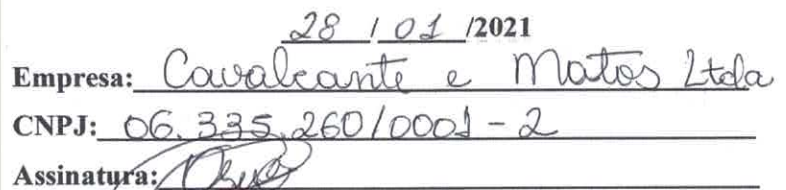 28 / 01 /2021
Empresa: Cavalcante e Matos Ltda
CNPJ: 06.335.260/0001-2
Assinatura: